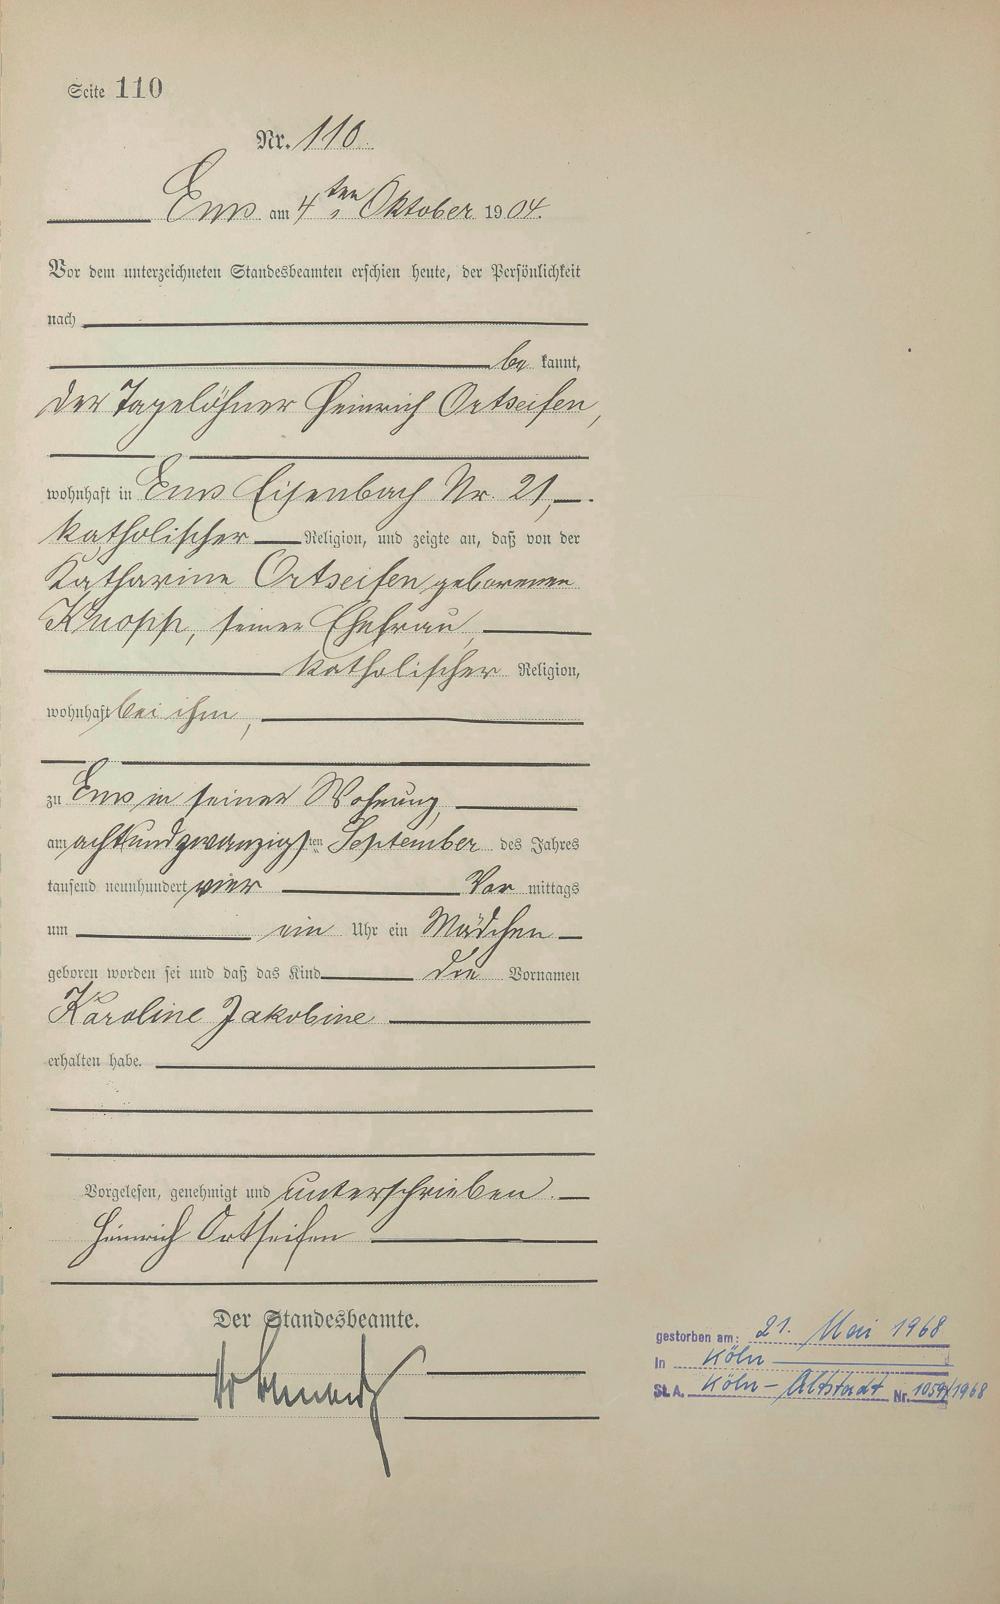 Seite 110
Nr. 110.
Ems am 4ten Oktober 1904.
Vor dem unterzeichneten Standesbeamten erschien heute, der Persönlichkeit
nach
be kannt,
der Tagelöhner Heinrich Ortseifen,
wohnhaft in Ems Eisenbach Nr. 21,
katholischer Religion, und zeigte an, daß von der
Katharina Ortseifen geborenen
Knopp, seiner Ehefrau,
katholischer Religion,
wohnhaft bei ihm,
zu Ems in seiner Wohnung,
am achtundzwanzigsten September des Jahres
tausend neunhundert vier Vor mittags
um ein Uhr ein Mädchen
geboren worden sei und daß das Kind die Vornamen
Karoline Jakobine
erhalten habe.
Vorgelesen, genehmigt und unterschrieben.
Heinrich Ortseifen
Der Standesbeamte.
gestorben am: 21. Mai 1968
in Köln
St.A. Köln - Altstadt Nr. /1968